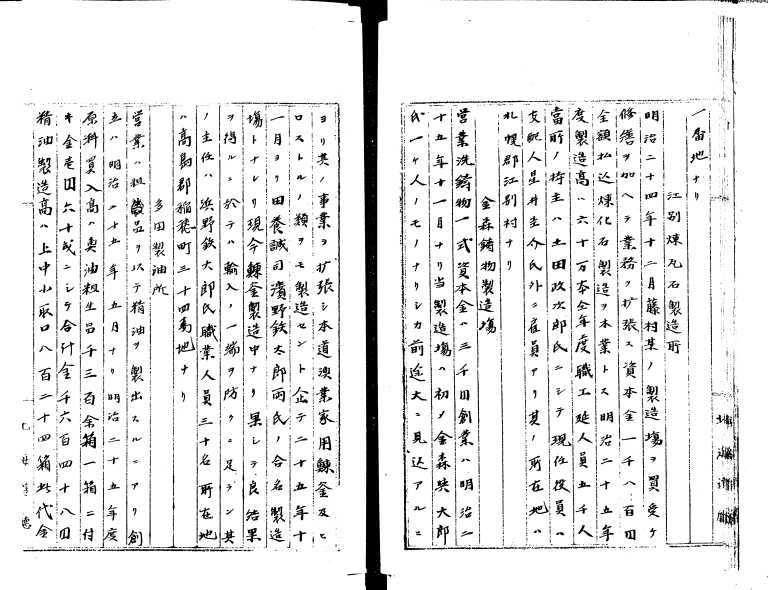 一番地ナリ
江別煉瓦石製造所
明治二十四年十二月藤村某ノ製造場ヲ買受ケ
修繕ヲ加ヘテ業務ヲ拡張ス資本金一千八百円
全額払込煉化石製造ヲ本業トス明治二十五年
度製造高ハ六十万本全年度職工延人員五千人
当所ノ持主ハ土田政次郎氏ニシテ現任役員ハ
支配人星井圭介氏外ニ雇員アリ其ノ所在地ハ
札幌郡江別村ナリ
金森鋳物製造場
営業洗鋳物一式資本金ハ三千円創業ハ明治二
十五年十一月ナリ当製造場ハ初メ金森英太郎
氏一ヶ人ノモノナリシカ前途大ニ見込アルニ
ヨリ其ノ事業ヲ扩張シ本道漁業家用鰊釜及ヒ
ロストルノ類ヲモ製造セント企テ二十五年十
一月ヨリ田養誠司濱野鉄太郎両氏ノ合名製造
場トナレリ現今鰊釜製造中ナリ果シテ良結果
ヲ得ルニ於テハ輸入ノ一端ヲ防クニ足ラン其
ノ主任ハ浜野鉄太郎氏職業人員三十名所在地
ハ高島郡稲穂町三十四番地ナリ
多田製油所
営業ハ粗製品ヲ以テ精油ヲ製出スルニアリ創
立ハ明治二十五年五月ナリ明治二十五年度
原料買入高ハ魚油粗生品千三百余箱一箱ニ付
キ金壱円六十銭ニシテ合計金千六百四十八円
精油製造高ハ上中小取口八百二十四箱此代金